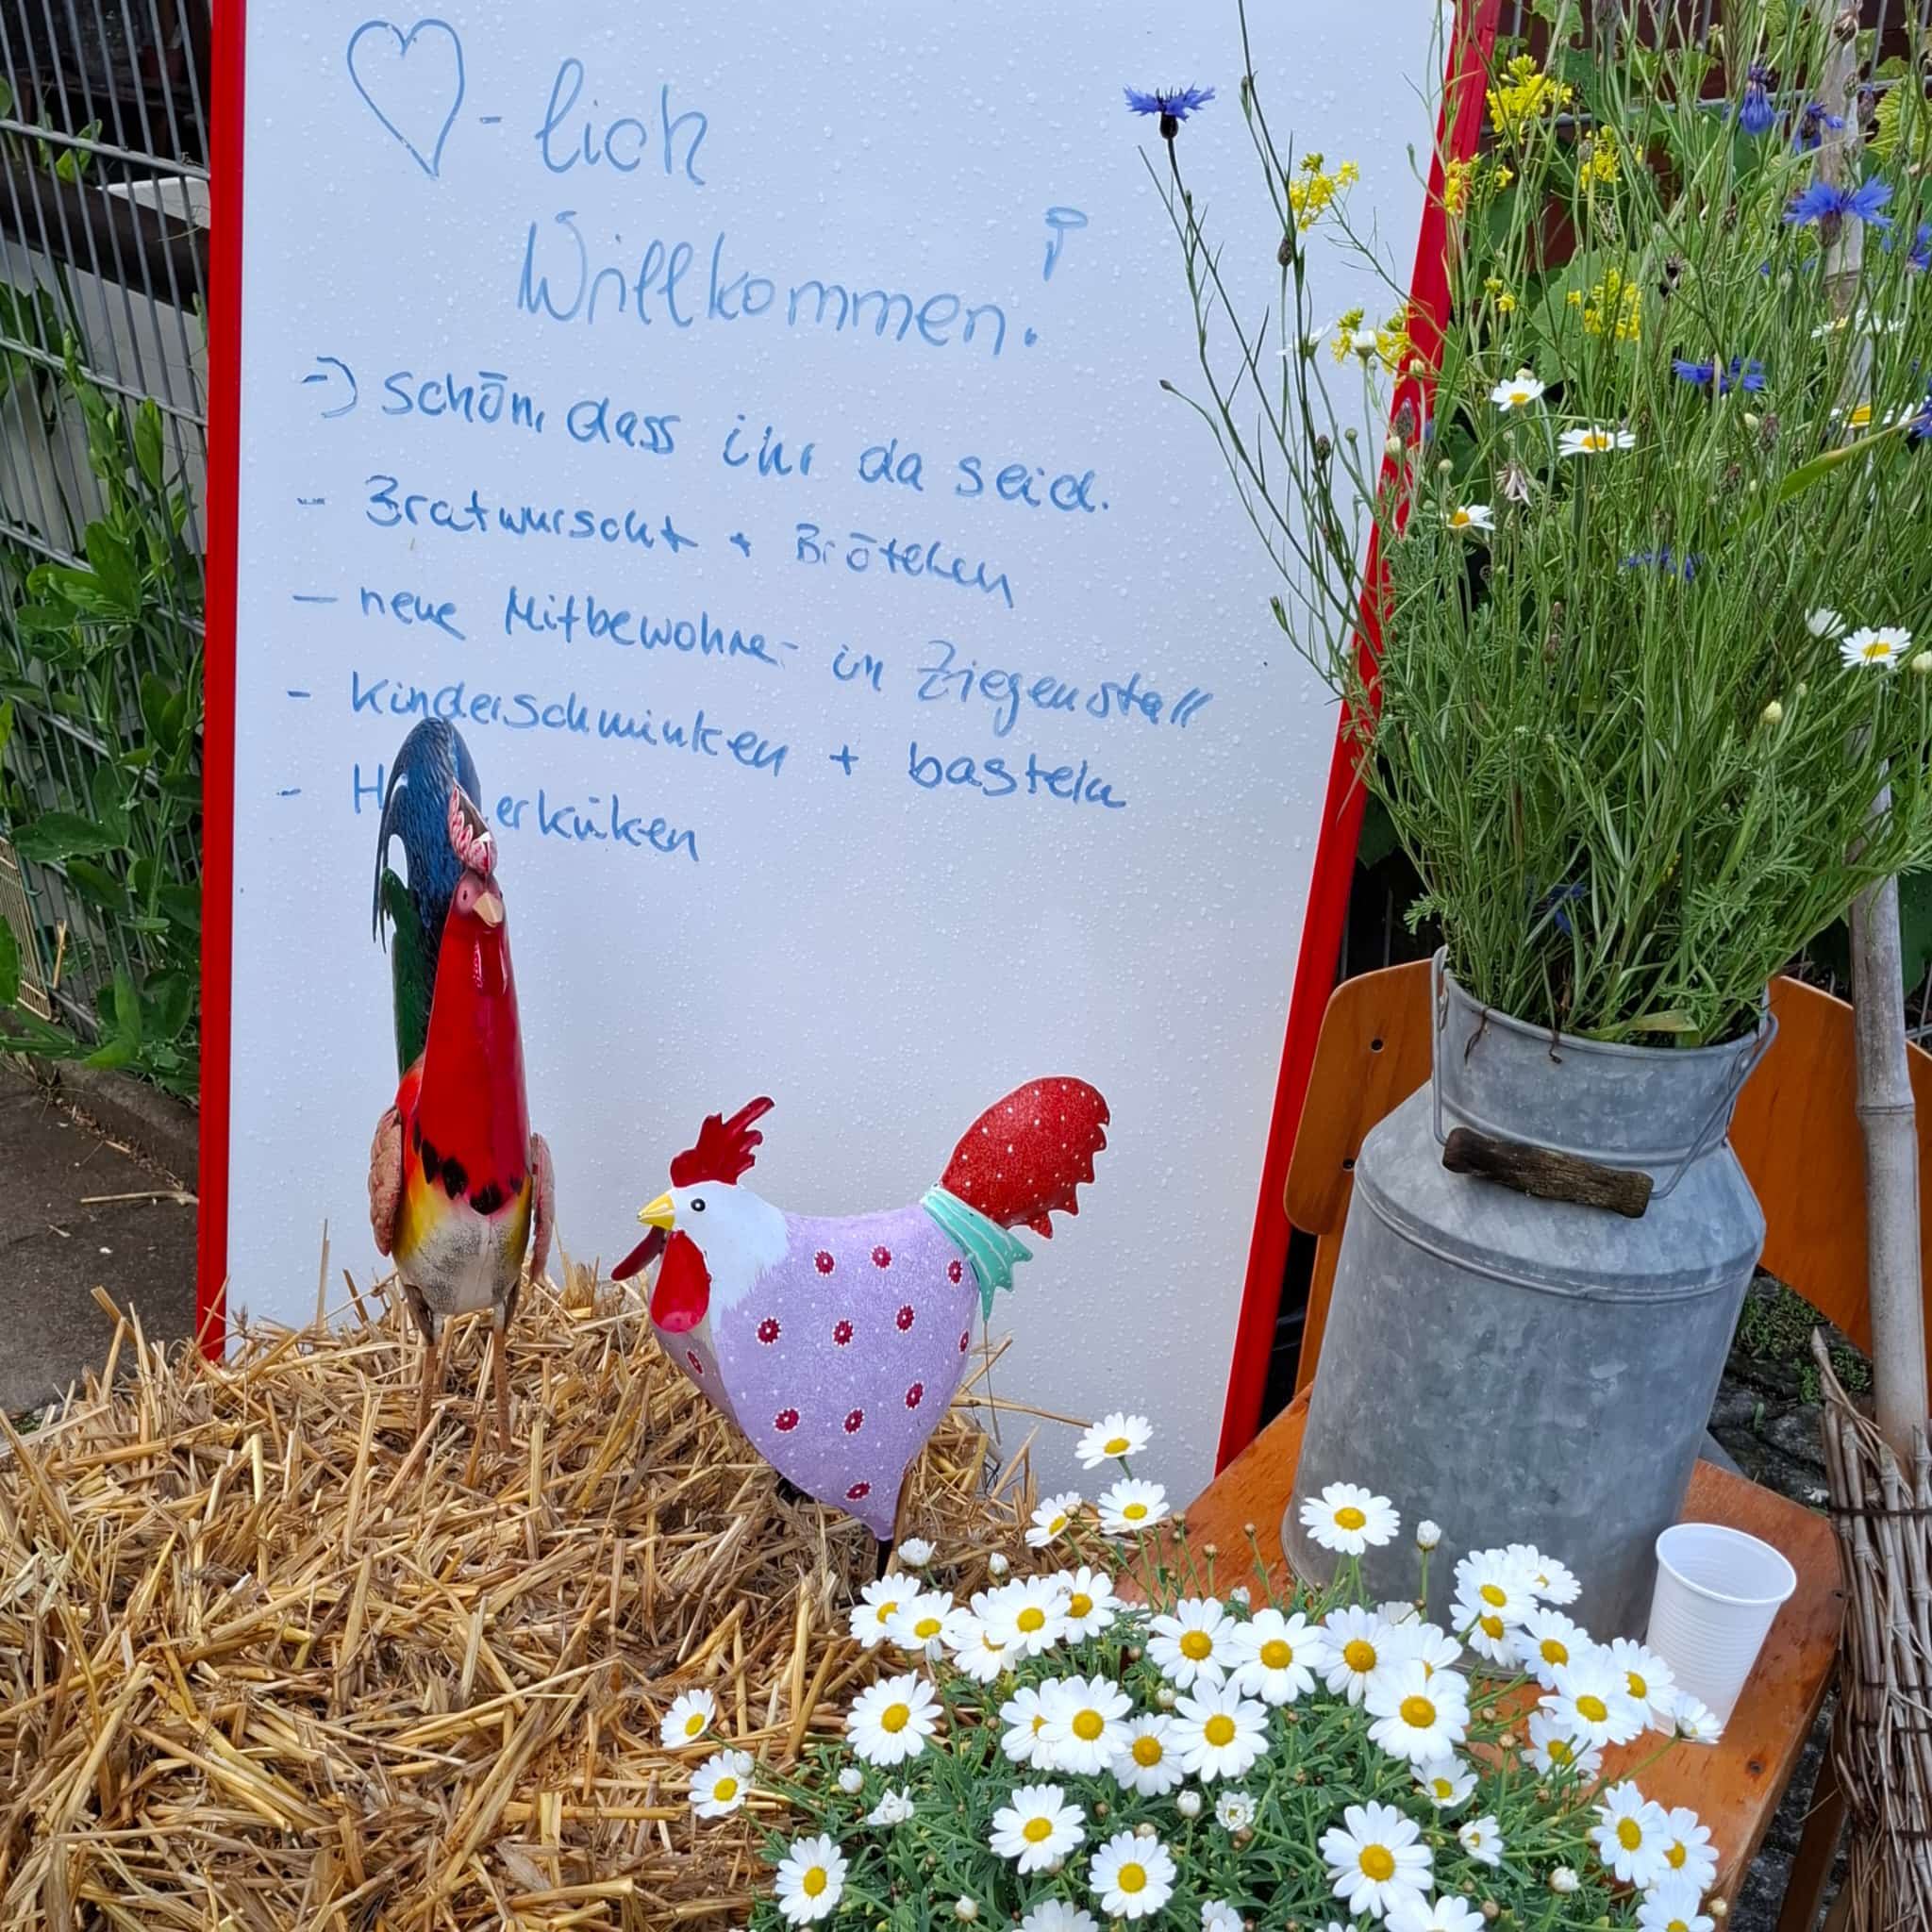 -lich
Willkommen!
-> schön, dass ihr da seid.
- Bratwurscht + Brötchen
- neue Mitbewohner im Ziegenstall
- Kinderschminken + basteln
- H erküken